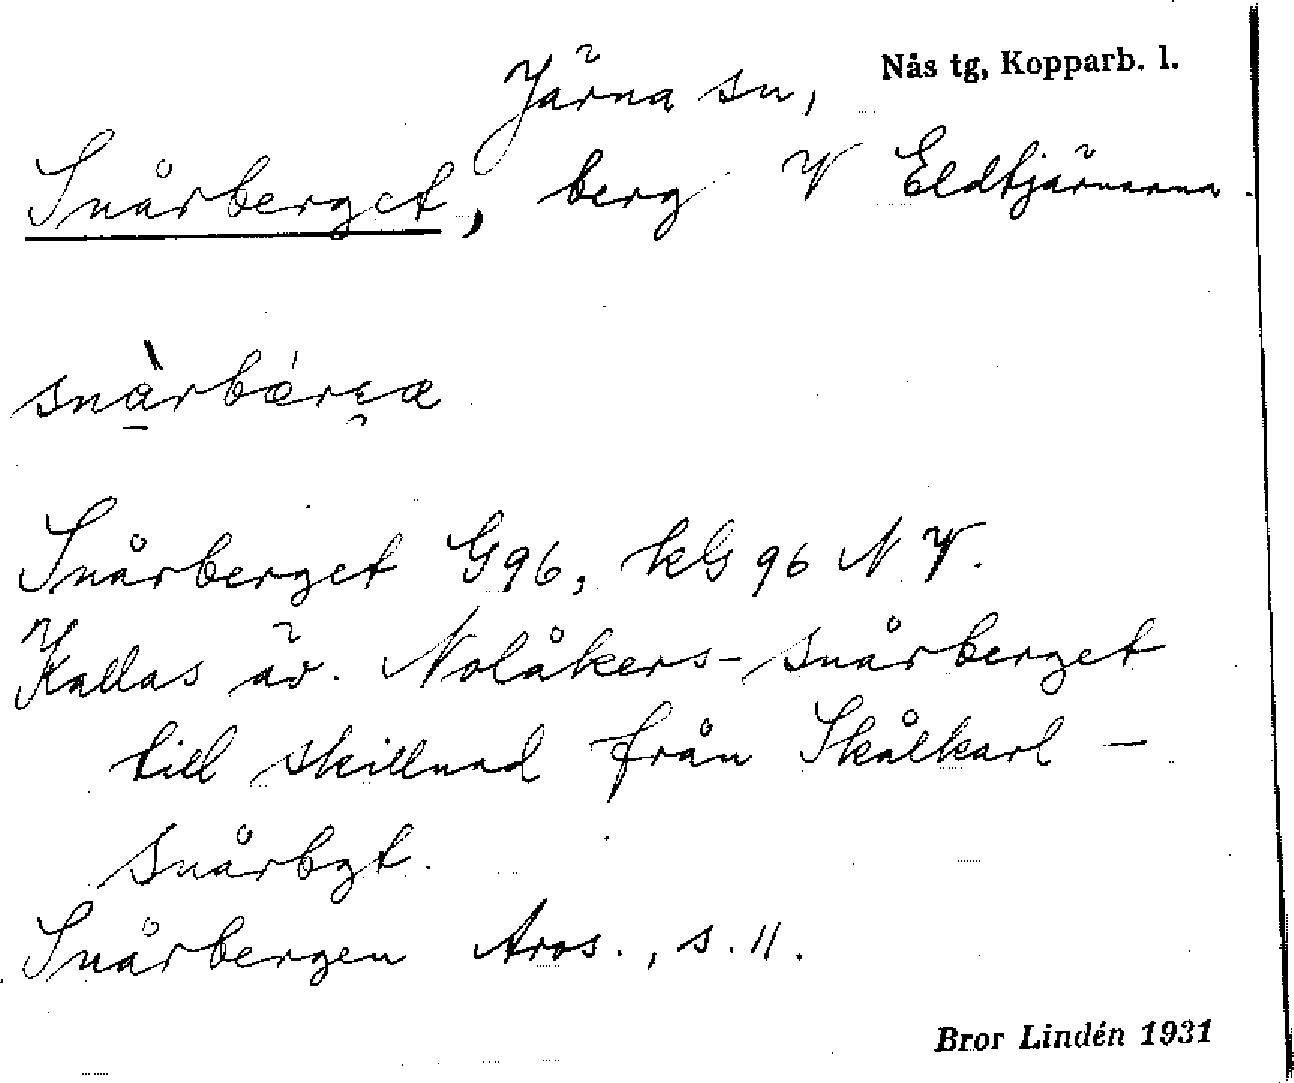 Järna sn, Nås tg, Kopparb. l.
Snårberget, berg V Eldtjärnarna.
Snårberget G96, kG96 NV.
Kallas äv. Nolåkers-snårberget
till skillnad från Skålkarl-
snårbgt.
Snårbergen Aros., s. 11.
Bror Lindén 1931